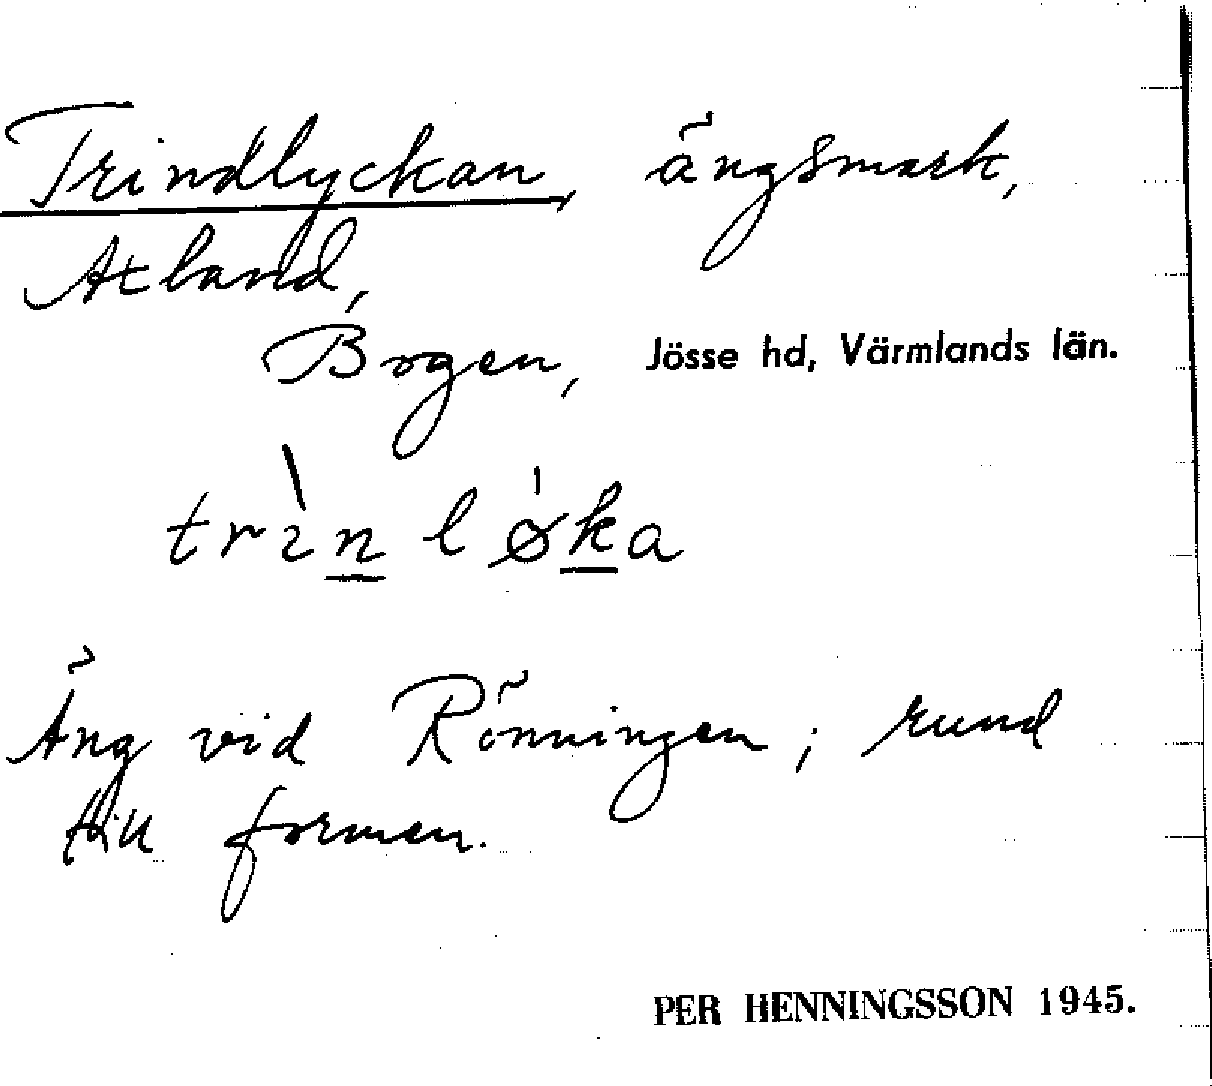 Trindlyckan, ängsmark,
Atland,
Bogen, Jösse hd, Värmlands län.
trìnløka
Äng vid Rönningen; rund
till formen.
PER HENNINGSSON 1945.